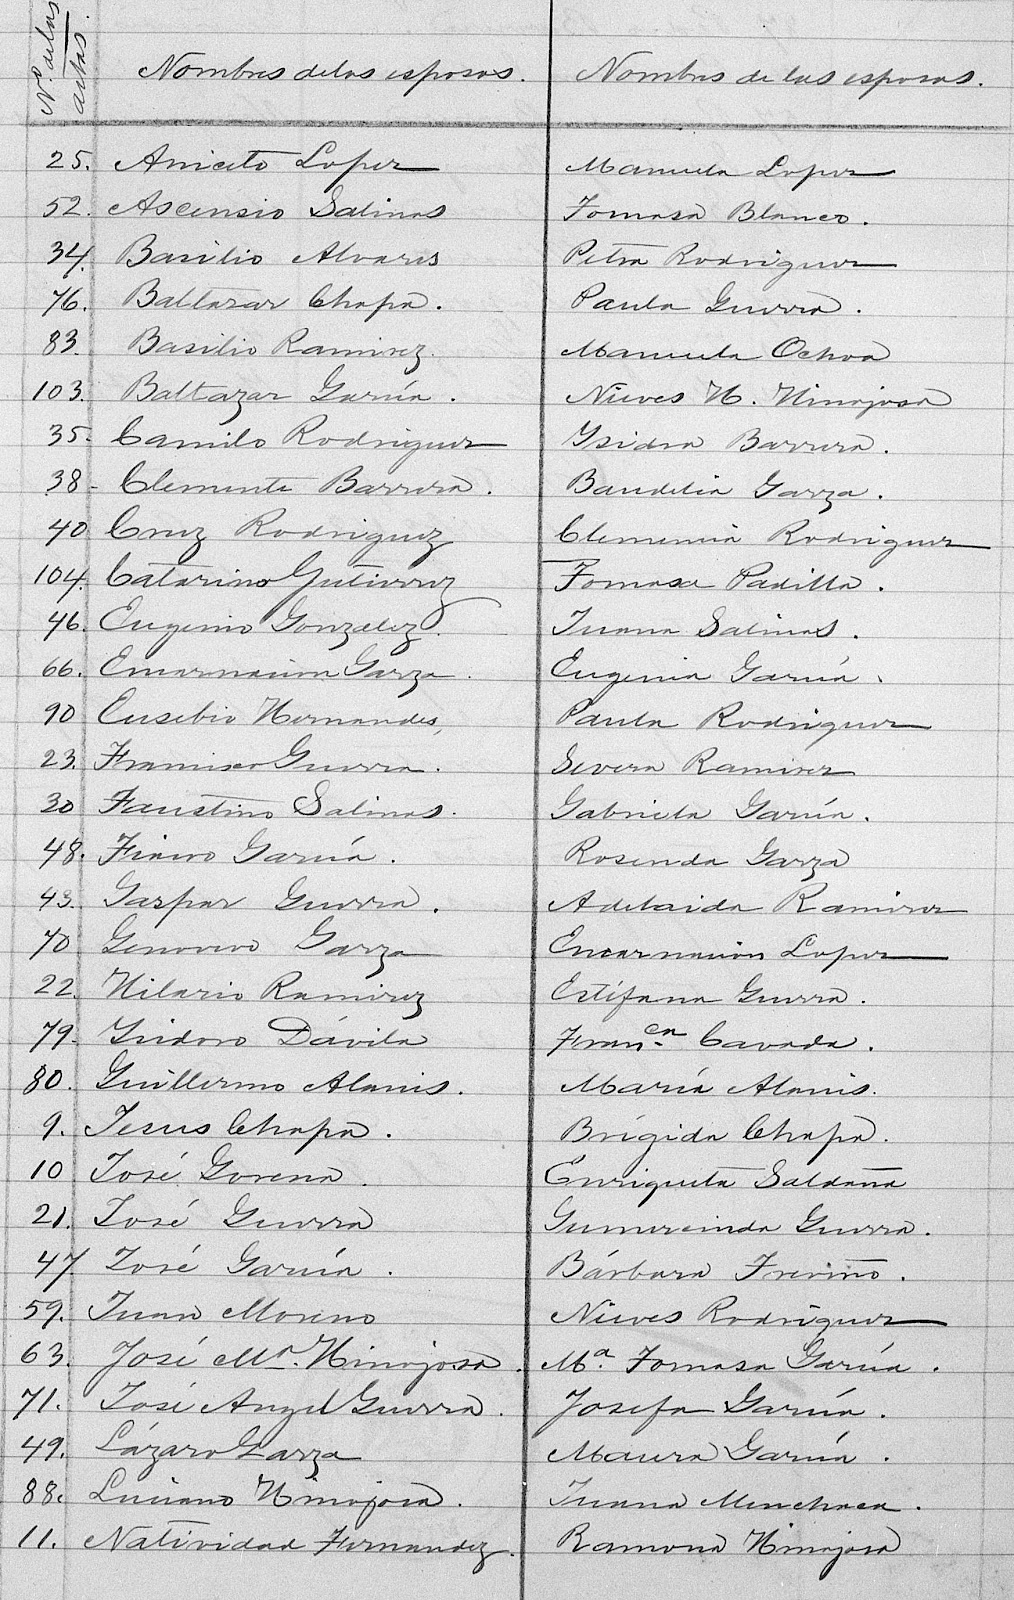 Nº. de las actas. Nombres de los esposos. Nombres de las esposas.
25. Aniceto Lopez Manuela Lopez
52. Ascensio Salinas Tomasa Blanco.
34. Basilio Alvares Petra Rodriguez
76. Baltazar Chapa. Paula Guerra.
83. Basilio Ramirez. Manuela Ochoa
103. Baltazar García. Nieves H. Hinojosa
35. Camilo Rodriguez Ysidra Barrera.
38- Clemente Barrera. Baudelia Garza.
40 Cruz Rodriguez Clemencia Rodriguez
104. Catarino Gutierrez Tomasa Padilla.
46. Eugenio Gonzalez. Juana Salinas.
66. Encarnacion Garza. Eugenia García.
90 Eusebio Hernandes, Paula Rodriguez
23. Francisco Guerra. Severa Ramirez
30 Faustino Salinas. Gabriela García.
48. García. Rosenda Garza
43. Gaspar Guerra. Adelaida Ramirez
70 Genovevo Garza Encarnación Lopez
22. Hilario Ramirez Estéfana Guerra.
79. Ysidoro Dávila Franᶜᵃ. Cavada.
80. Guillermo Alanis. María Alanis.
9. Jesus Chapa. Brígida Chapa.
10 José Gorena. Enriqueta Saldaña
21. José Guerra Gumercinda Guerra.
47. José García. Bárbara Treviño.
59. Juan Moreno Nieves Rodriguez
63. José Mª. Hinojosa. Mª. Tomasa García.
71. José Angel Guerra. Josefa García.
49. Lázaro Garza Maura García.
88. Luciano Hinojosa. Juana Menchaca.
11. Natividad Fernandez. Ramona Hinojosa